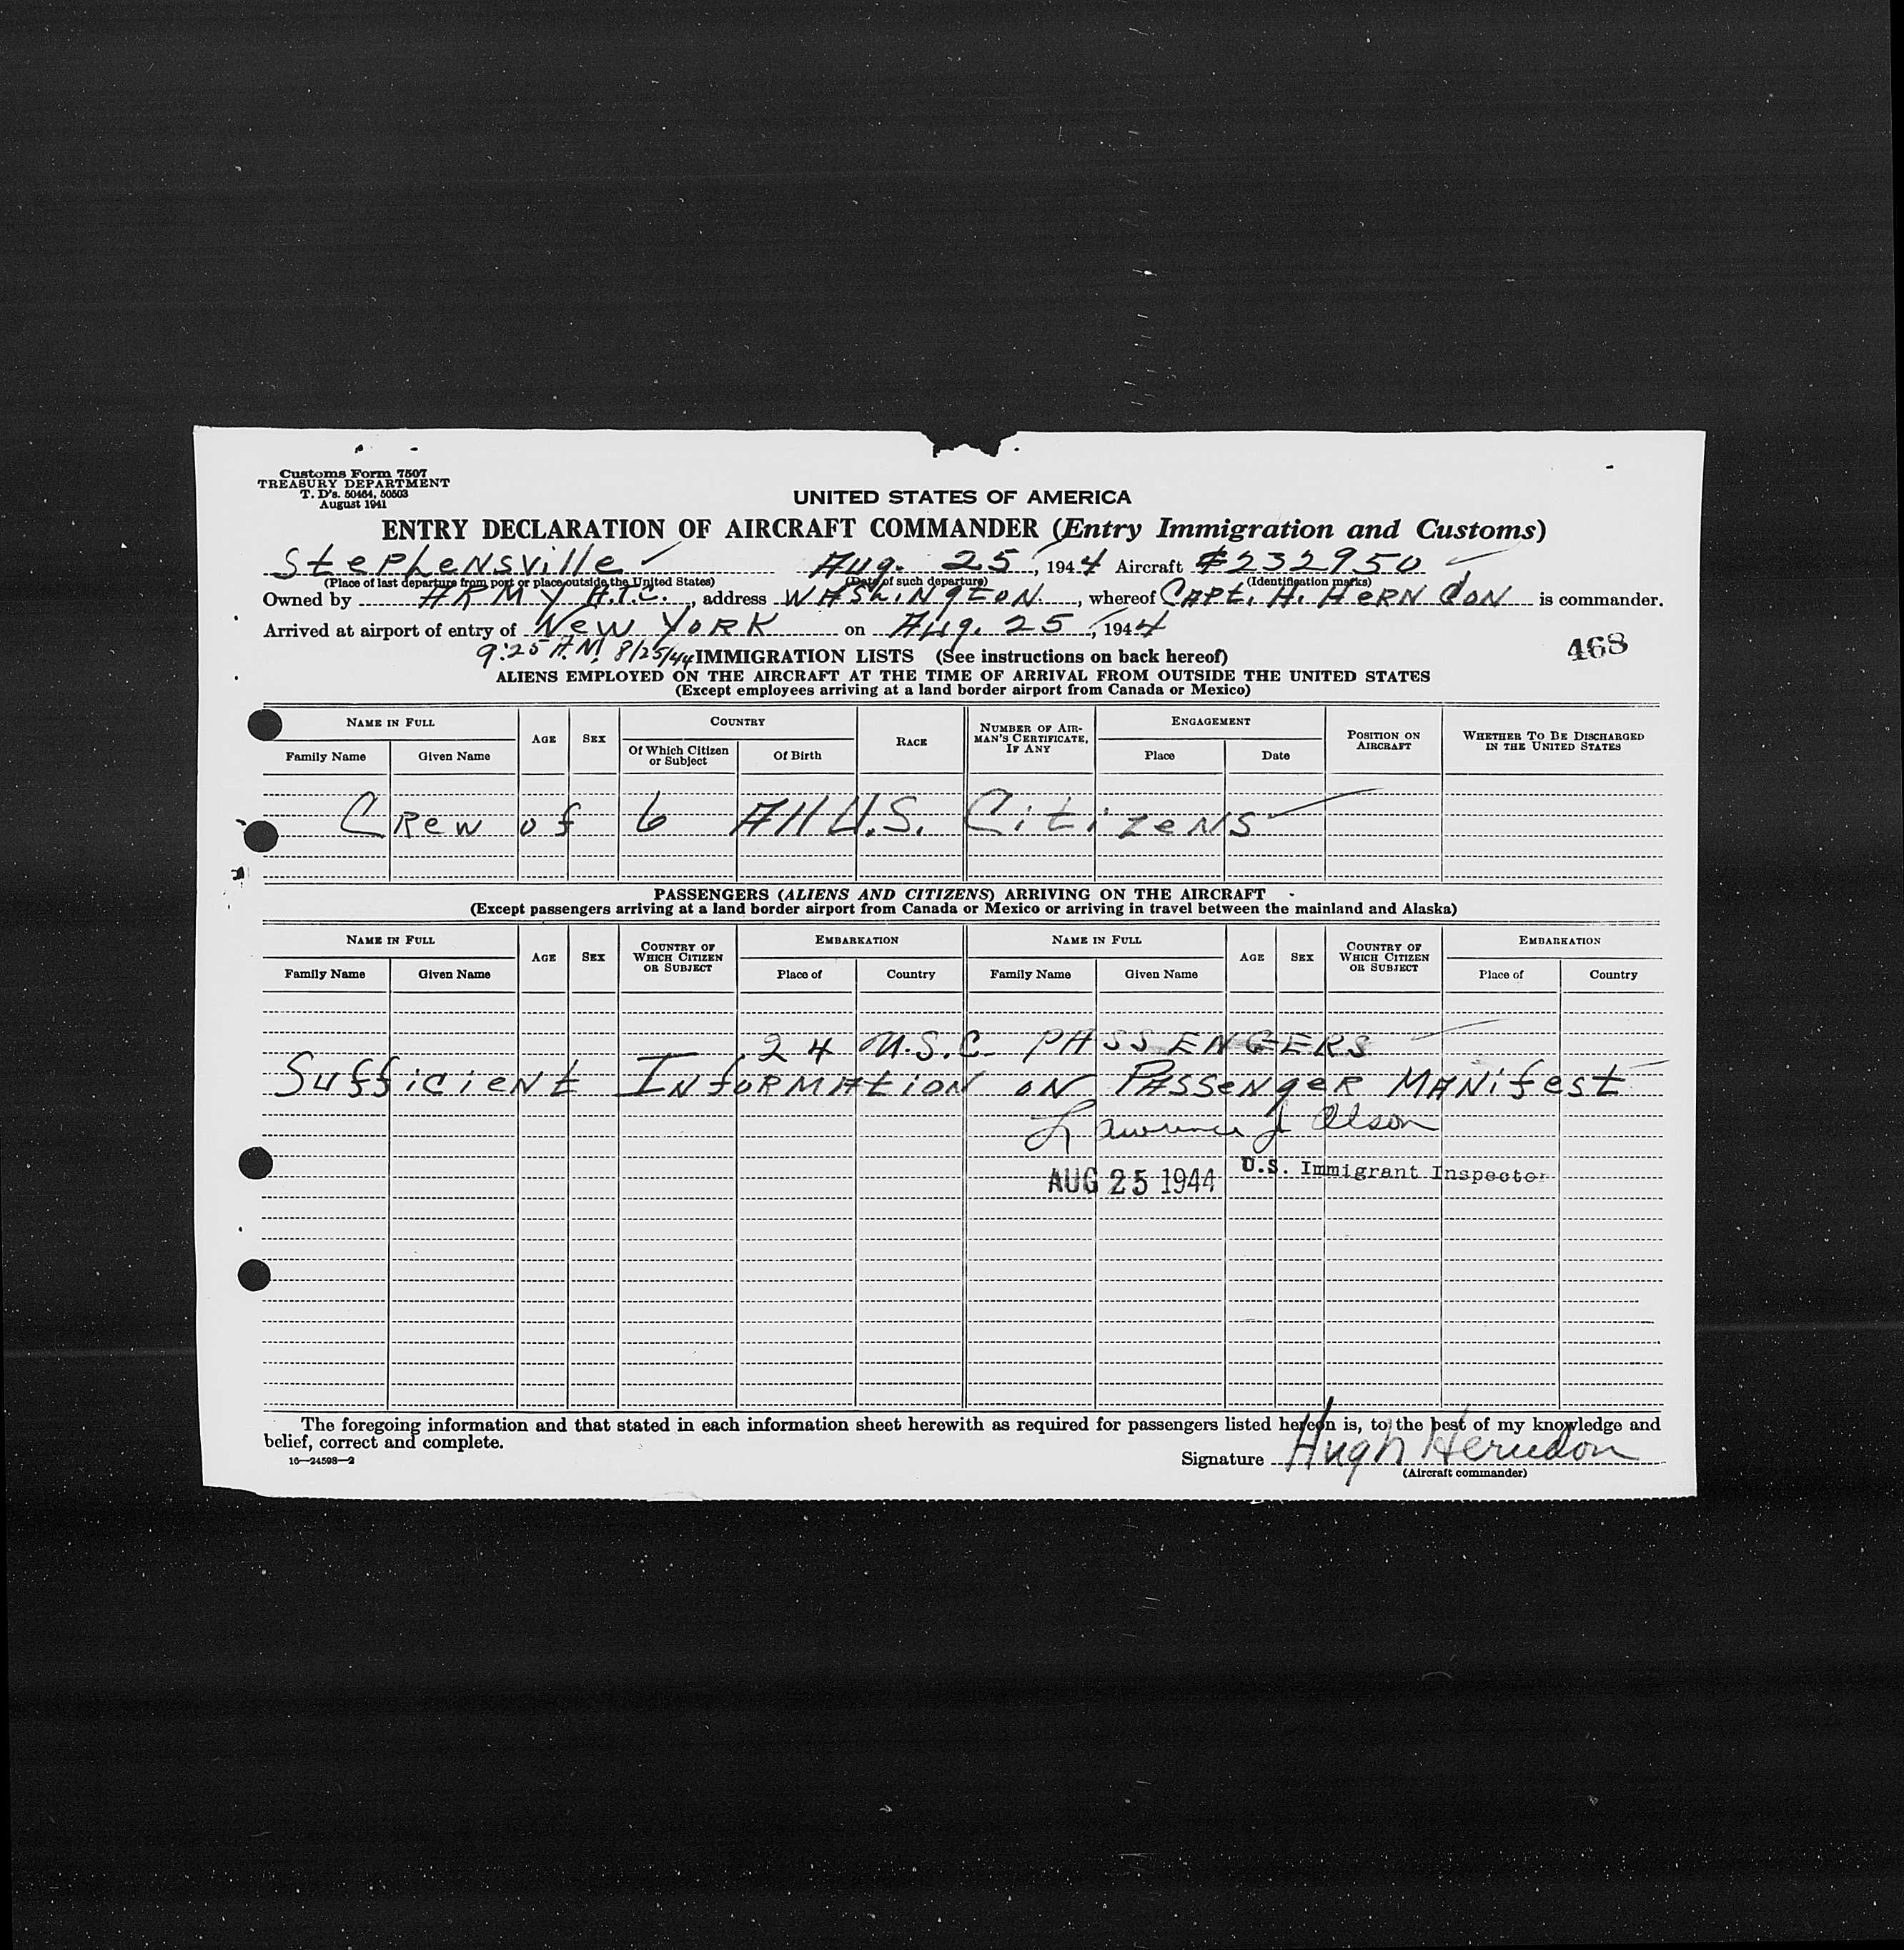 Customs Form 7507
TREASURY DEPARTMENT
T. D's. 50464, 50503
August 1941
UNITED STATES OF AMERICA
ENTRY DECLARATION OF AIRCRAFT COMMANDER (Entry Immigration and Customs)
Stephensville Aug. 25, 1944 Aircraft #232950
(Place of last departure from port or place outside the United States) (Date of such departure) (Identification marks)
Owned by ARMY A.T.C., address WAShiNgtoN, whereof CAPt. H. HERNdoN is commander.
Arrived at airport of entry of New YORK on Aug. 25, 1944
468
9:25 A.M. 8/25/44 IMMIGRATION LISTS (See instructions on back hereof)
ALIENS EMPLOYED ON THE AIRCRAFT AT THE TIME OF ARRIVAL FROM OUTSIDE THE UNITED STATES
(Except employees arriving at a land border airport from Canada or Mexico)
NAME IN FULL AGE SEX COUNTRY RACE NUMBER OF AIRMAN'S CERTIFICATE, IF ANY ENGAGEMENT POSITION ON AIRCRAFT WHETHER TO BE DISCHARGED IN THE UNITED STATES
Family Name Given Name Of Which Citizen or Subject Of Birth Place Date
Crew of 6 All U.S. Citizens
PASSENGERS (ALIENS AND CITIZENS) ARRIVING ON THE AIRCRAFT
(Except passengers arriving at a land border airport from Canada or Mexico or arriving in travel between the mainland and Alaska)
NAME IN FULL AGE SEX COUNTRY OF WHICH CITIZEN OR SUBJECT EMBARKATION NAME IN FULL AGE SEX COUNTRY OF WHICH CITIZEN OR SUBJECT EMBARKATION
Family Name Given Name Place of Country Family Name Given Name Place of Country
24 U.S.C. PASSENGERS
Sufficient Information on Passenger Manifest
Lawrence J Olson
AUG 25 1944 U.S. Immigrant Inspector
The foregoing information and that stated in each information sheet herewith as required for passengers listed hereon is, to the best of my knowledge and
belief, correct and complete.
16—24598-2
Signature Hugh Herndon
(Aircraft commander)